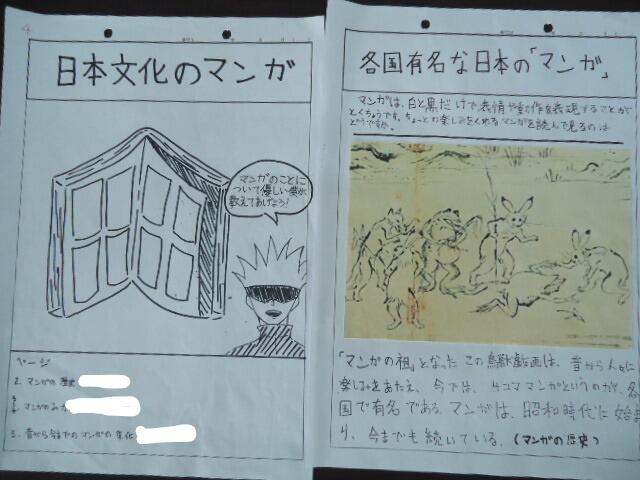 日本文化のマンガ
マンガのことに
ついて優しい僕が
教えてあげよう!
ページ
2. マンガの歴史
マンガのみ
5. 昔から今までのマンガの変化
各国有名な日本の「マンガ」
マンガは、白と黒だけで表情や動作を表現することがで
とくちょうです。ちょっとの楽しみをくれるマンガを読んで見るのは
どうですか。
「マンガの祖」となったこの鳥獣戯画は、昔から人々に
楽しみをあたえ、今では、4コママンガというのが、各
国で有名である。マンガは、昭和時代に始ま
り、今までも続いている。(マンガの歴史)